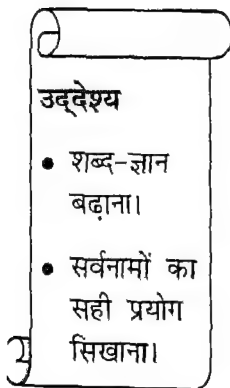 उद्देश्य
• शब्द-ज्ञान
बढ़ाना।
• सर्वनामों का
सही प्रयोग
सिखाना।